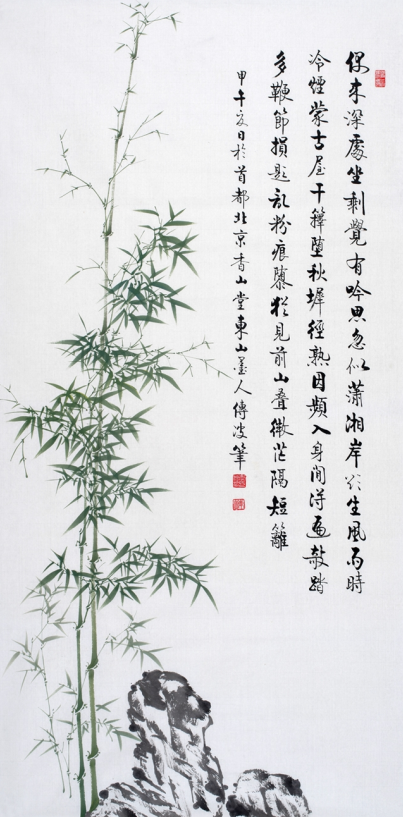 偶来深處坐剩覺有吟思忽似瀟湘岸欲生風雨時
冷煙蒙古屋干籜墮秋墀徑熟因頻入身閒得遍敧踏
多鞭節損題乱粉痕隳犹見前山叠微茫隔短籬
甲午夏日於首都北京香山堂東山墨人傳波筆